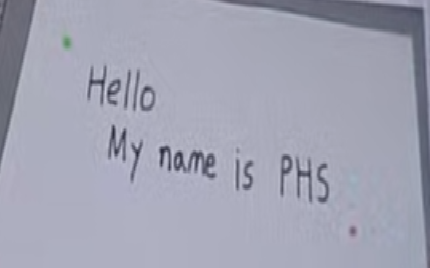 Hello
My name is PHS